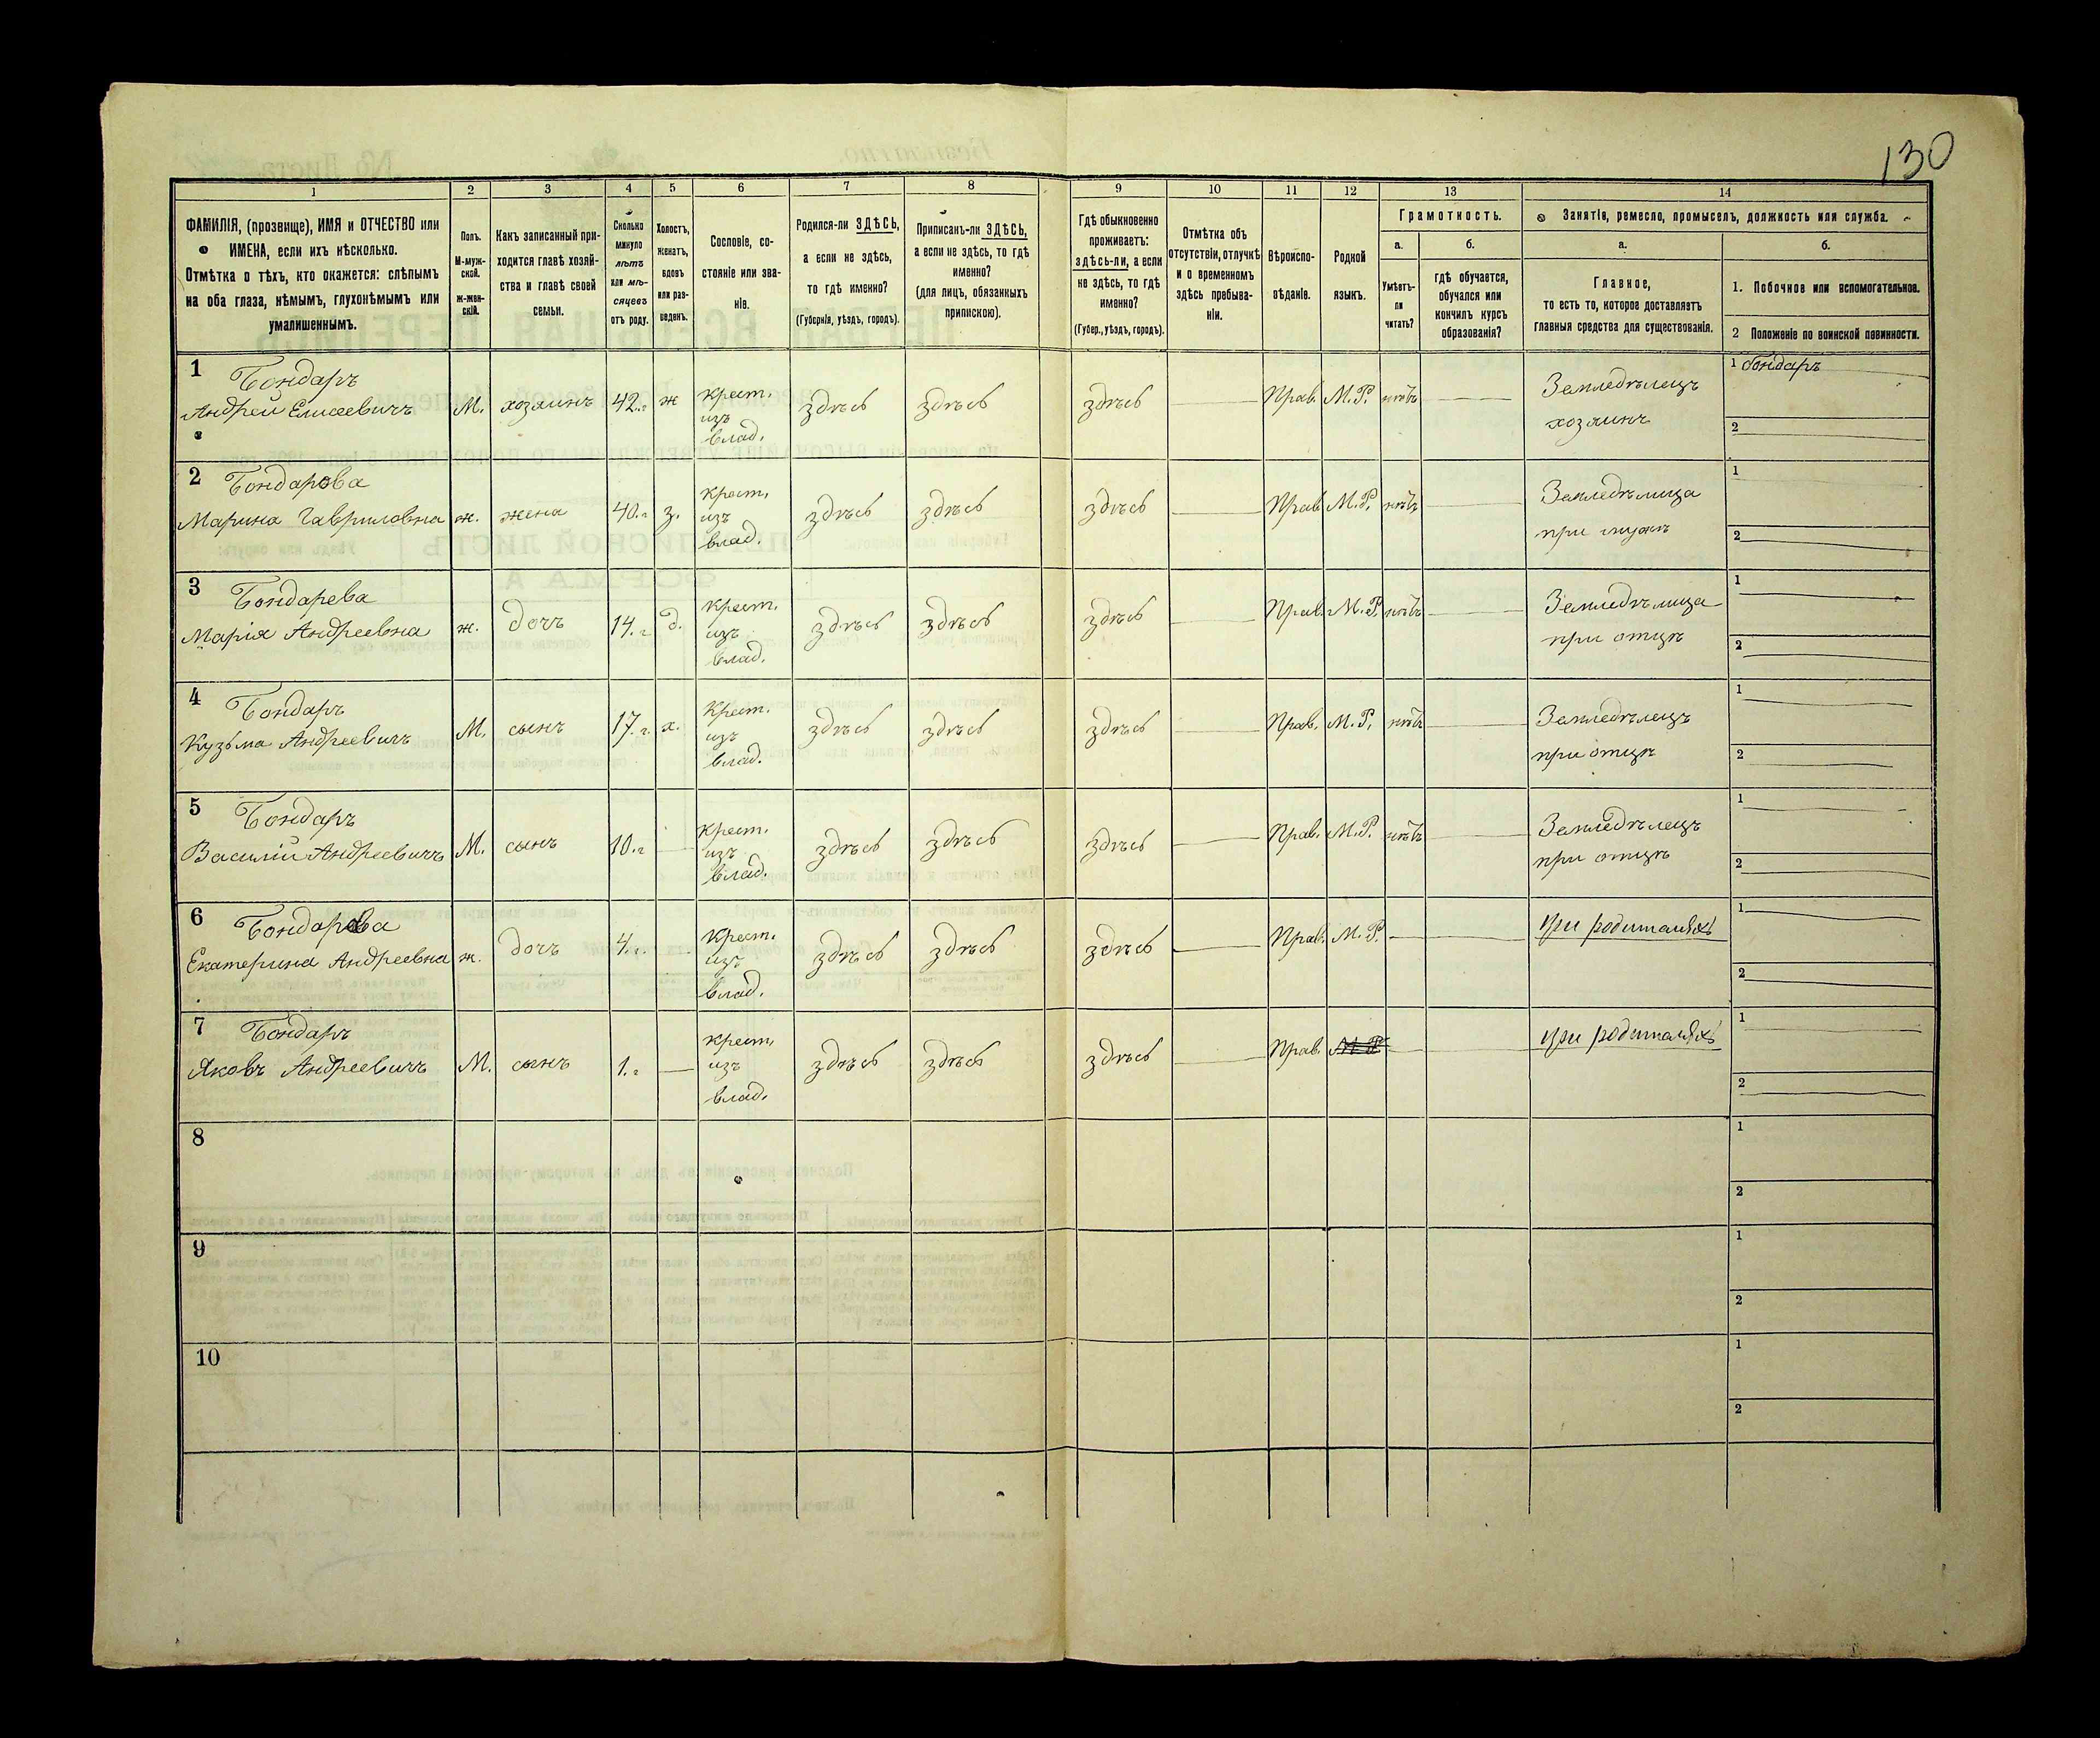 130
1 2 3 4 5 6 7 8 9 10 11 12 13 14
ФАМИЛІЯ, (прозвище), ИМЯ и ОТЧЕСТВО или
ИМЕНА, если ихъ нѣсколько.
Отмѣтка о тѣхъ, кто окажется: слѣпымъ
на оба глаза, нѣмымъ, глухонѣмымъ или
умалишеннымъ.
Полъ.
М-муж-
ской.
ж-жен-
скій.
Какъ записанный при-
ходится главѣ хозяй-
ства и главѣ своей
семьи.
Сколько
минуло
лѣтъ
или мѣ-
сяцевъ
отъ роду.
Холостъ,
женатъ,
вдовъ
или раз-
веденъ.
Сословіе, со-
стояніе или зва-
ніе.
Родился-ли ЗДѢСЬ,
а если не здѣсь,
то гдѣ именно?
(Губернія, уѣздъ, городъ).
Приписанъ-ли ЗДѢСЬ,
а если не здѣсь, то гдѣ
именно?
(для лицъ, обязанныхъ
припискою).
Гдѣ обыкновенно
проживаетъ:
здѣсь-ли, а если
не здѣсь, то гдѣ
именно?
(Губер., уѣздъ, городъ).
Отмѣтка объ
отсутствіи, отлучкѣ
и о временномъ
здѣсь пребыва-
ніи.
Вѣроиспо-
вѣданіе.
Родной
языкъ.
Грамотность.
а.
Умѣетъ-
ли
читать?
б.
гдѣ обучается,
обучался или
кончилъ курсъ
образованія?
Занятіе, ремесло, промыселъ, должность или служба.
а.
Главное,
то есть то, которое доставляетъ
главныя средства для существованія.
б.
1. Побочное или вспомогательное.
2 Положеніе по воинской повинности.
1 Бондарь
Андрей Елисеевичъ М. хозяинъ 42.г ж крест. изъ влад. здѣсь здѣсь здѣсь Прав. М.Р. нѣтъ Земледѣлецъ хозяинъ 1 бондарь
2
2 Бондарева
Марина Гавриловна ж. жена 40.г з. крест. изъ влад. здѣсь здѣсь здѣсь Прав М.Р. нѣтъ Земледѣлица при мужѣ 1
2
3 Бондарева
Марія Андреевна ж. дочь 14.г д. крест. изъ влад. здѣсь здѣсь здѣсь Прав. М.Р. нѣтъ Земледѣлица при отцѣ 1
2
4 Бондарь
Кузьма Андреевичъ М. сынъ 17.г х. крест. изъ влад. здѣсь здѣсь здѣсь Прав. М.Р. нѣтъ Земледѣлецъ при отцѣ 1
2
5 Бондарь
Василій Андреевичъ М. сынъ 10.г крест. изъ влад. здѣсь здѣсь здѣсь Прав. М.Р. нѣтъ Земледѣлецъ при отцѣ 1
2
6 Бондарева
Екатерина Андреевна ж. дочь 4.г. крест. изъ влад. здѣсь здѣсь здѣсь Прав. М.Р. при родителяхъ 1
2
7 Бондарь
Яковъ Андреевичъ М. сынъ 1.г крест. изъ влад. здѣсь здѣсь здѣсь Прав. М.Р. при родителяхъ 1
2
8 1
2
9 1
2
10 1
2